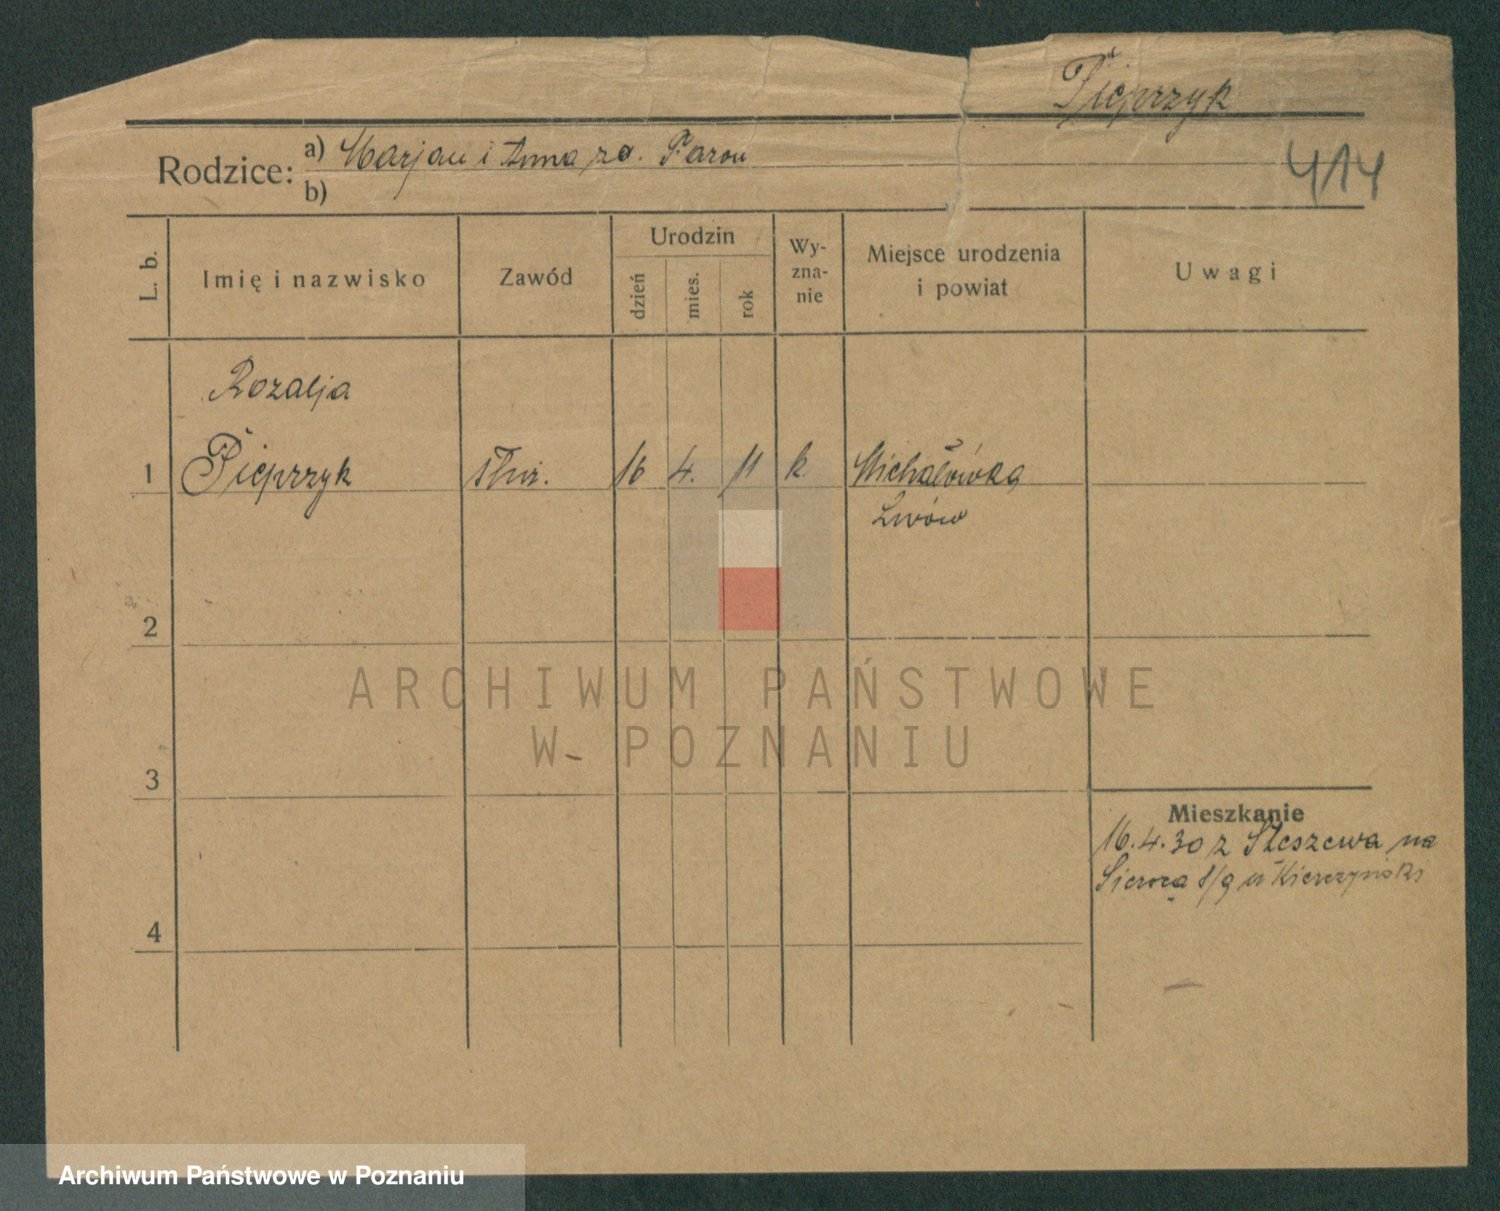 Pieprzyk
Rodzice: a) Marjan i Anna zd. Faron
b)
414
L. b.
Imię i nazwisko
Zawód
Urodzin
dzień
mies.
rok
Wy-
zna-
nie
Miejsce urodzenia
i powiat
Uwagi
Rozalja
1 Pieprzyk służ. 16 4. 11 k. Michałówka
Lwów
2
3
4
Mieszkanie
16.4.30 z Stęszewa na
8/9 u
ARCHIWUM PAŃSTWOWE
W POZNANIU
Archiwum Państwowe w Poznaniu